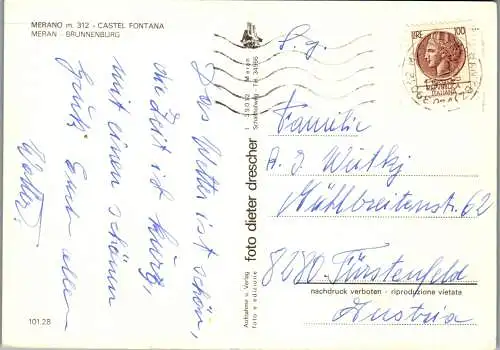 MERANO m. 312 - CASTEL FONTANA
MERAN - BRUNNENBURG
Das Wetter ist schön,
die Zeit ist kurz,
mit einen schönen
Gruß Euch allen
Walter!
101.28
foto dieter drescher
I 39012 Meran
Schafferweg Tel. 34966
Aufnahme u. Verlag
foto e edizione
LIRE 100
REPUBBLICA
ITALIANA
S. g.
Familie
A. D.
Mühlbreitenstr. 62
8280 Fürstenfeld
nachdruck verboten - riproduzione vietata
Austria